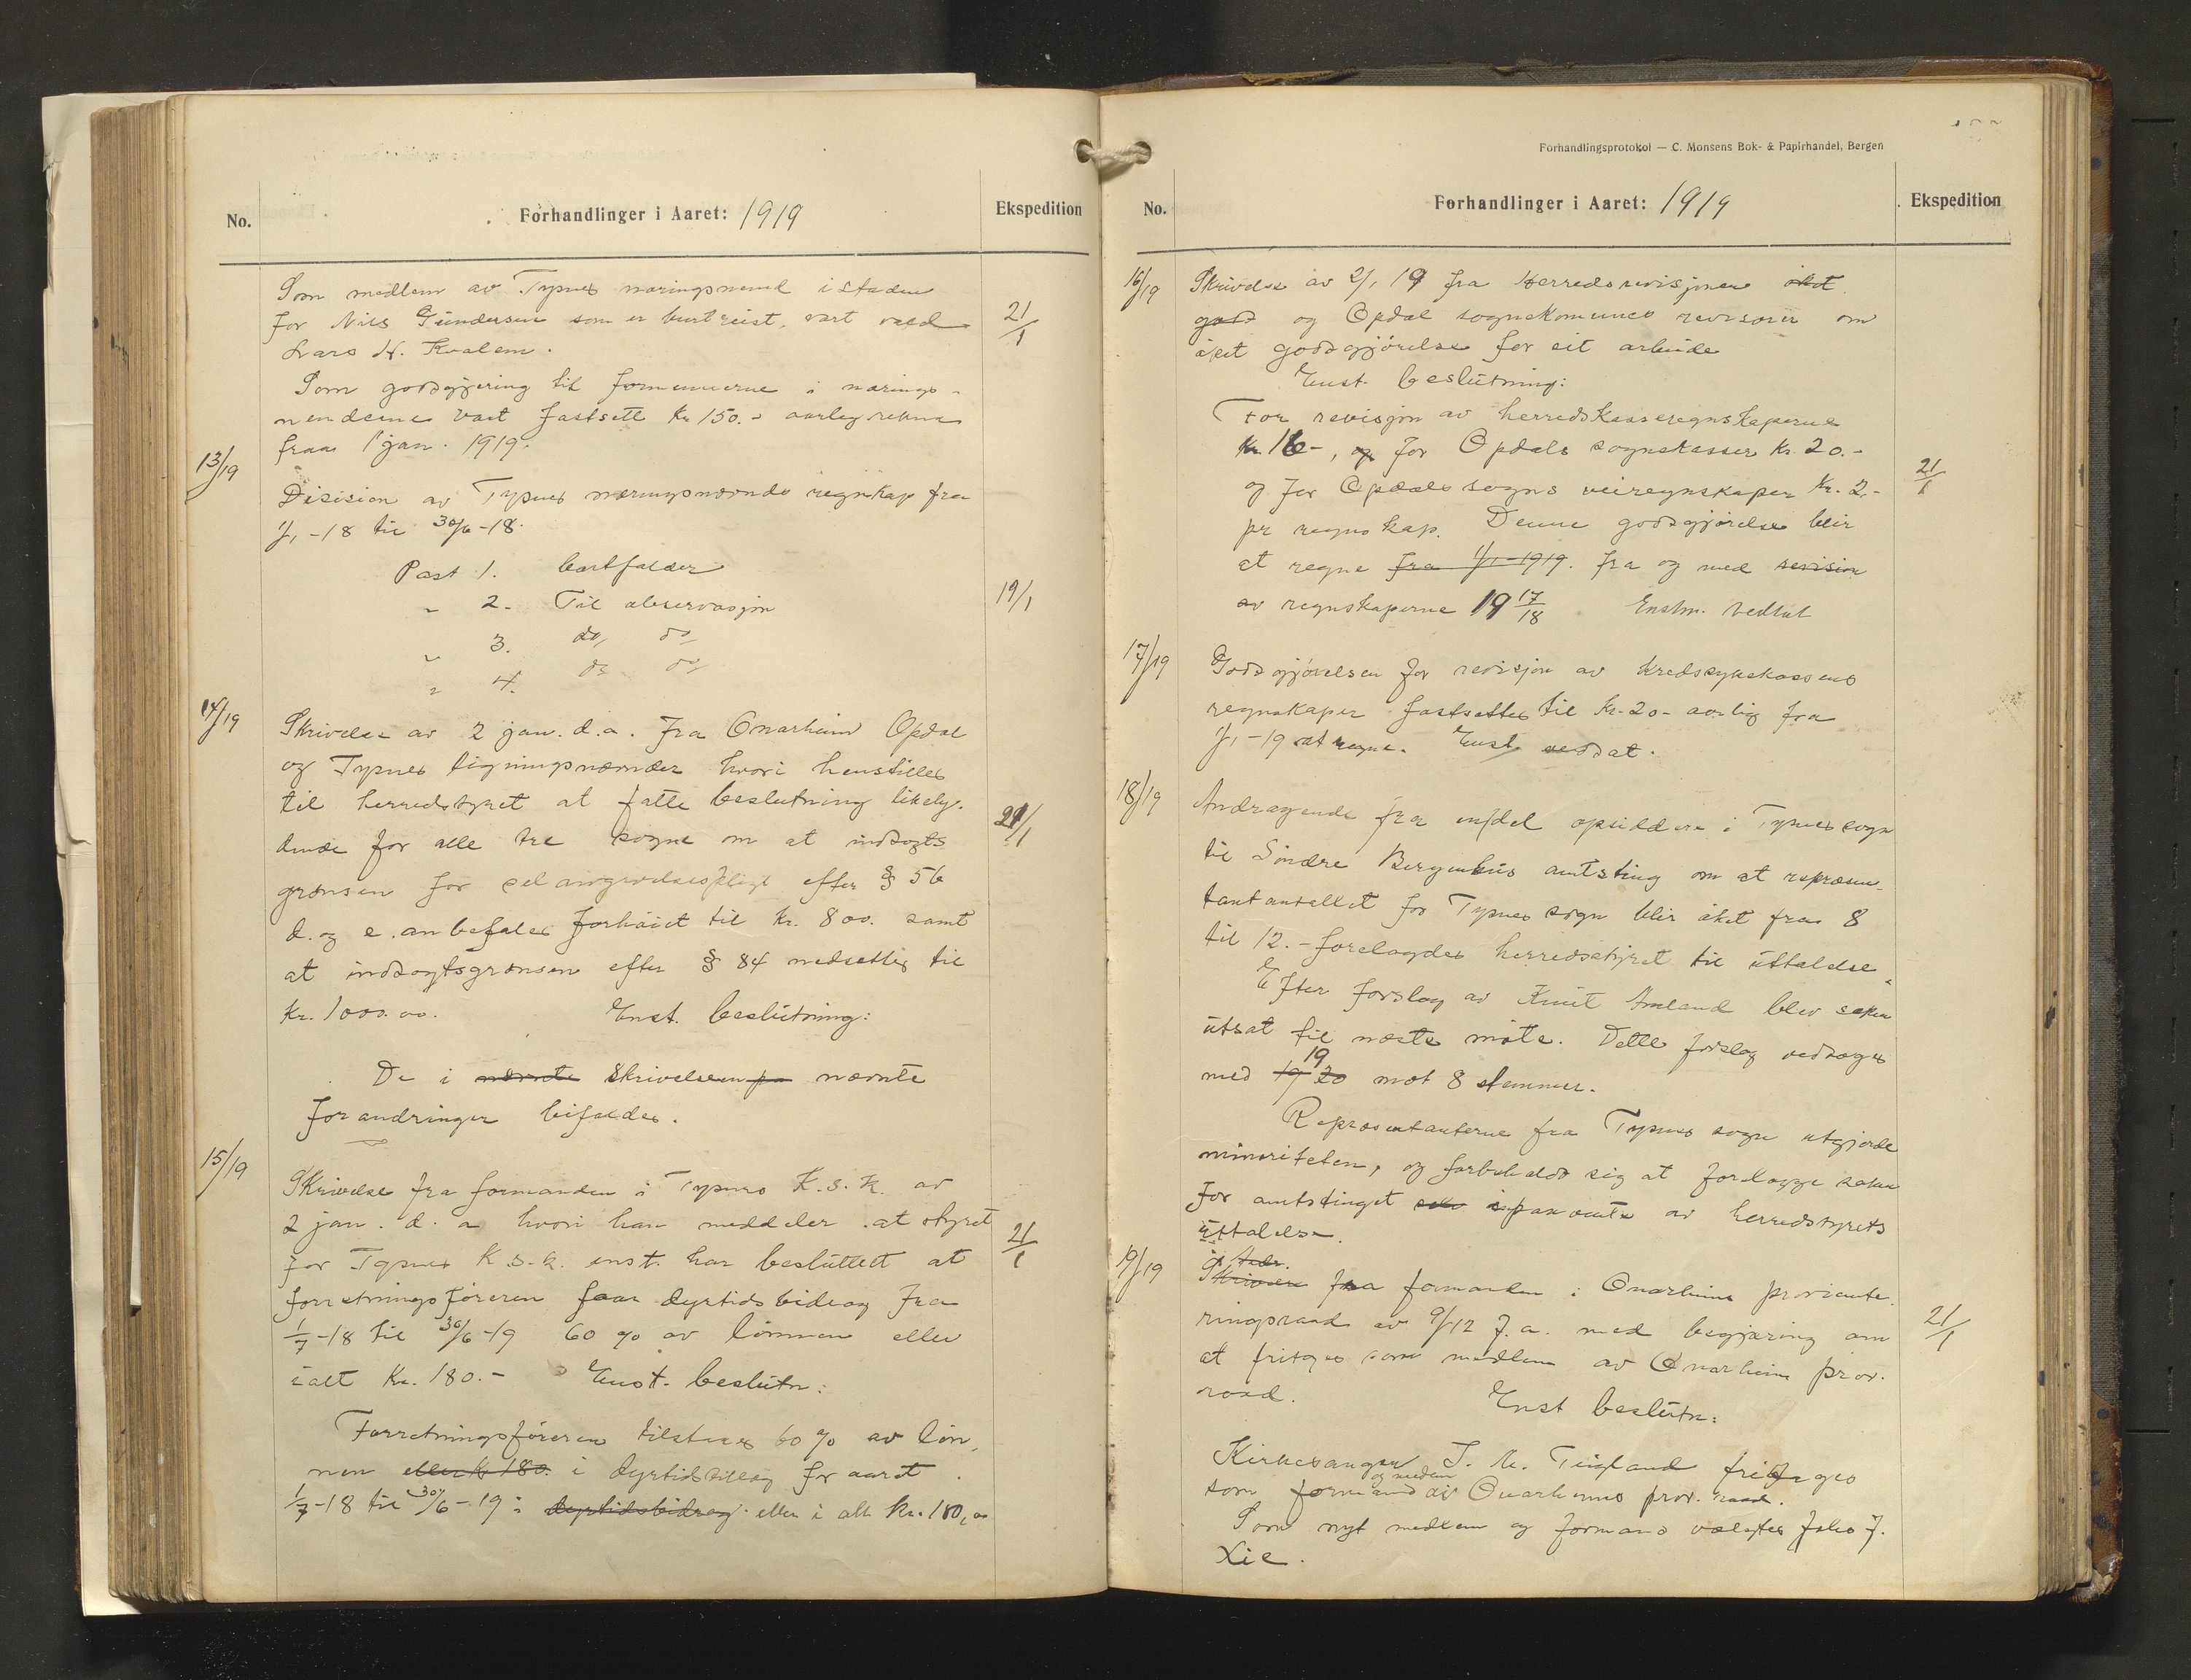 No.
Forhandlinger i Aaret: 1919
Ekspedition
Som medlem av Tysnes næringsnemd istaden
for Nils Gundersen som er burtreist, vart vald
21/1
Lars N. Kvalem.
Som godgjering til formennerne i nærings-
nemderne vart fastsett kr 150.- aarleg rekna
fraa 1 jan. 1919.
13/19
Disision av Tysnes næringsnævnds regnskap fra
1/1-18 til 30/6-18.
Post 1. bortfalder
" 2. Til observasjon
19/1
" 3. do do
" 4. do do
14/19
Skrivelse av 2 jan. d.a. fra Onarheim Opdal
og Tysnes ligningsnævnder hvori henstilles
til herredstyret at fatte beslutning likely-
dende for alle tre sogne om at indtægts
21/1
grænsen for selangivelsespligt efter § 56
d. og e. anbefales forhøiet til kr. 800. samt
at indtægtsgrænsen efter § 84 nedsettes til
kr. 1000.00. Enst. beslutning:
De i nævnte skrivelsen på nævnte
forandringer bifaldes.
15/19
Skrivelse fra formanden i Tysnes K.S.K. av
2 jan. d. a. hvori han meddeler at styret
21/1
for Tysnes K.S.K. enst. har besluttet at
forretningsføreren faar dyrtidsbidrag fra
1/7-18 til 30/6-19 60 % av lønnen eller
ialt Kr. 180.- Enst. beslutn:
Forretningsføreren tilstaaes 60 % av løn,
nen eller kr 180. i dyrtidstillæg for aaret
1/7-18 til 30/6-19: dyrtidsbidrag eller i alt kr. 180,00
Forhandlingsprotokol — C. Monsens Bok- & Papirhandel, Bergen
No.
Forhandlinger i Aaret: 1919
Ekspedition
16/19
Skrivelse av 2/1 19 fra Herredsrevisjonen øket
godt og Opdal sognekommunes revisorer om
øket godtgjørelse for sit arbeide
Enst. beslutning:
For revisjon av herredskasseregnskaperne
kr. 16-, og for Opdals sognekasser kr. 20.-
21/1
og for Opdals sogns veiregnskaper kr. 2.-
pr regnskap. Denne godtgjørelse blir
at regne fra 1/1-1919. fra og med revision
av regnskaperne 19 17/18 Enstm. vedtat
17/19
Godtgjørelsen for revisjon av kredssykekassens
regnskaper fastsættes til kr. 20- aarlig fra
1/1-19 at regne. Enst. vedtat.
18/19
Andragende fra endel opsiddere i Tysnes sogn
til Søndre Bergenhus amtsting om at repræsen-
tantantallet for Tysnes sogn blir øket fra 8
til 12.- forelagdes herredsstyret til uttalelse.
Efter forslag av Knut Amland blev saken
utsat til næste møte. Dette forslag vedtoges
med 19 20 19 mot 8 stemmer.
Repræsentanterne fra Tysnes sogn utgjorde
minoriteten, og forbeholdt sig at forelægge saken
for amtstinget av herredstyrets
uttalelse.
19/19
Skrivelse fra formanden i Onarheim proviante-
ringsraad av 9/12 f.a. med begjæring om
21/1
at fritages som medlem av Onarheim prov.
raad. Enst beslutn:
Kirkesanger fritages
og medlem
som formand av Onarheims prov. raad.
Som nyt medlem og formand valgtes
Lie.